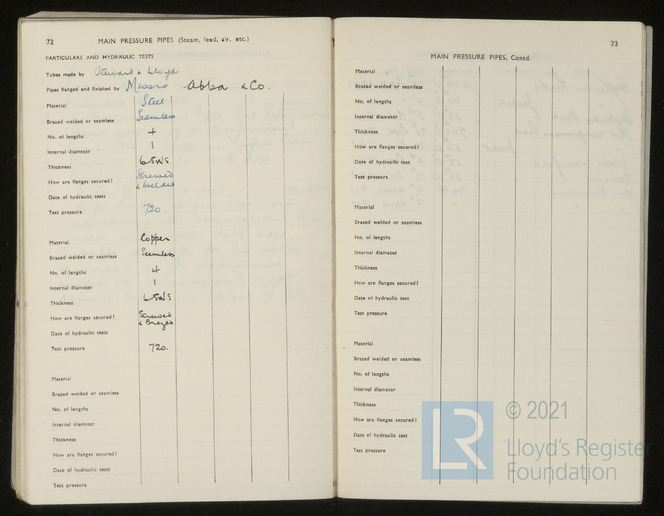 72 MAIN PRESSURE PIPES (Steam, feed, air, etc.)
PARTICULARS AND HYDRAULIC TESTS
Tubes made by Stewart & Lloyd
Pipes flanged and finished by Messrs Abba & Co.
Material Steel
Brazed welded or seamless Seamless
No. of lengths 4
Internal diameter 1
Thickness 6SWS
How are flanges secured? Screwed
& welded
Date of hydraulic tests
Test pressure 720
Material Copper
Brazed welded or seamless Seamless
No. of lengths 4
Internal diameter 1
Thickness 6SWS
How are flanges secured? Screwed
& Brazed
Date of hydraulic tests
Test pressure 720.
Material
Brazed welded or seamless
No. of lengths
Internal diameter
Thickness
How are flanges secured?
Date of hydraulic tests
Test pressure
73
MAIN PRESSURE PIPES, Contd.
Material
Brazed welded or seamless
No. of lengths
Internal diameter
Thickness
How are flanges secured?
Date of hydraulic tests
Test pressure
Material
Brazed welded or seamless
No. of lengths
Internal diameter
Thickness
How are flanges secured?
Date of hydraulic tests
Test pressure
Material
Brazed welded or seamless
No. of lengths
Internal diameter
Thickness
How are flanges secured?
Date of hydraulic tests
Test pressure
LR
© 2021
Lloyd's Register
Foundation